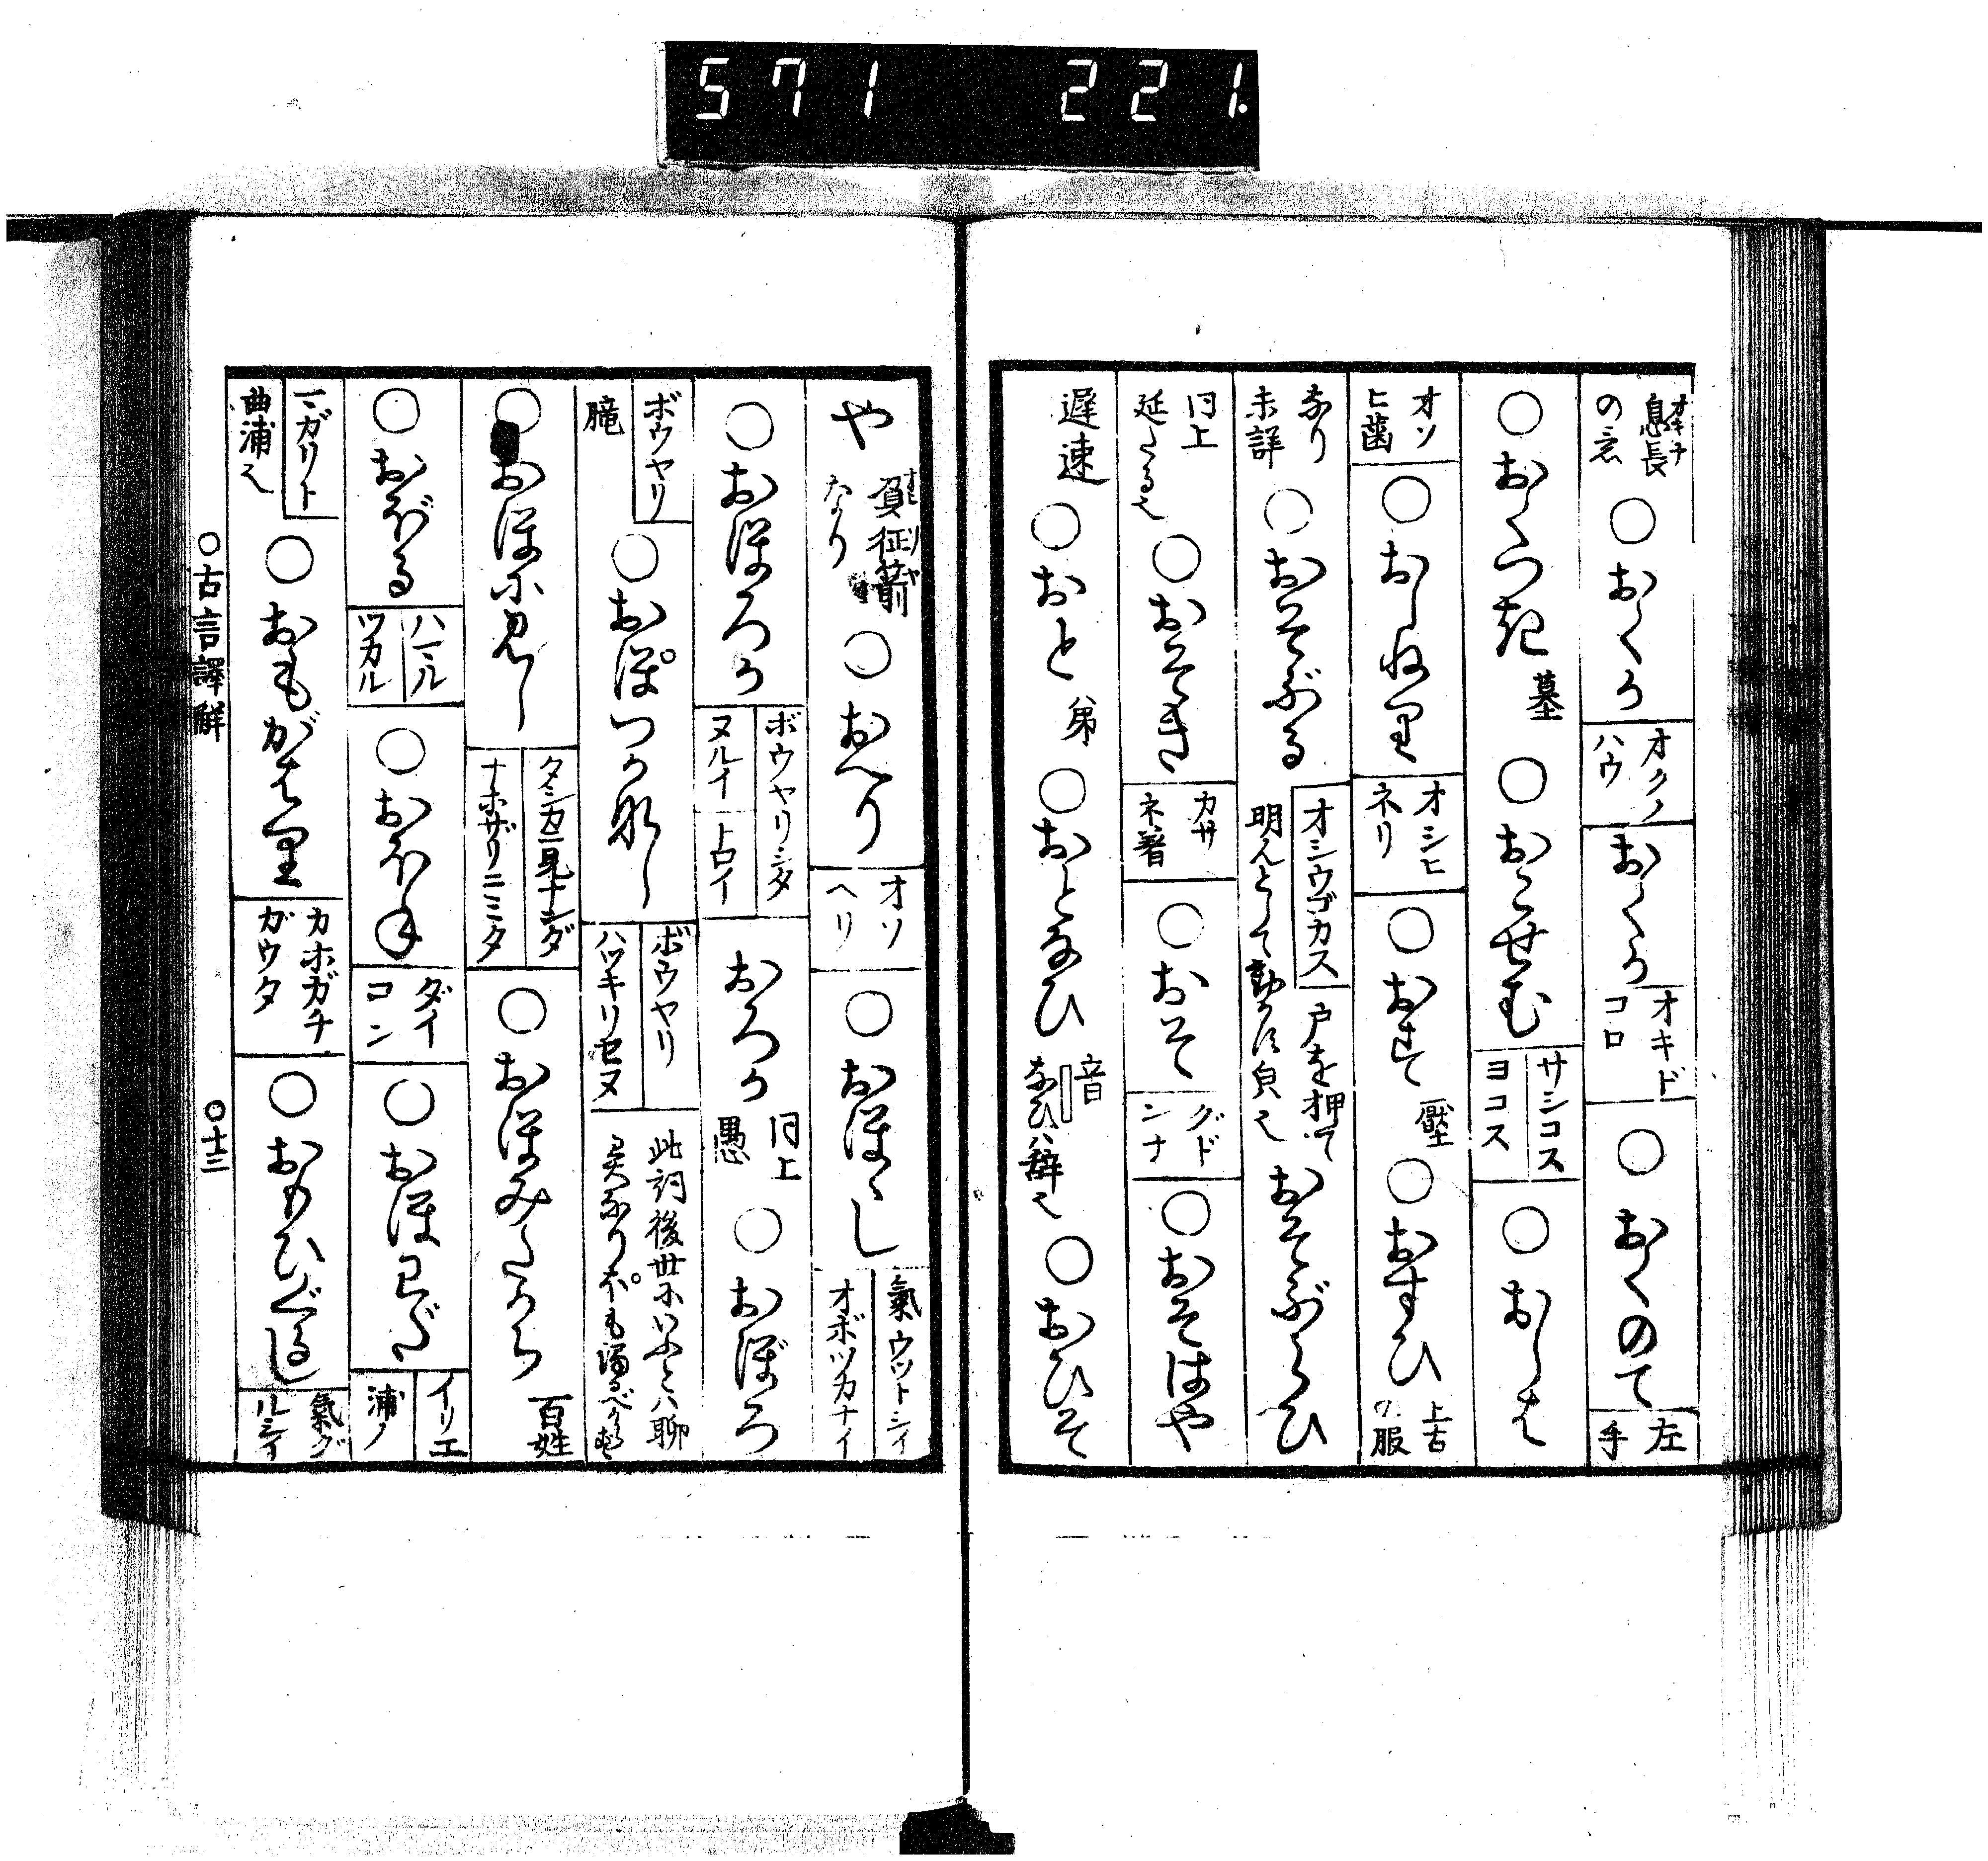 571 221.
息長オキナ
の意
○おくか
オクノ
ハウ
おくか
オキド
コロ
○おくのて
左
手
○おくつき
墓
○おこせむ
サシコス
ヨコス
○おしは
オソ
ヒ歯
○おしねり
オシヒ
ネリ
○おす
壓
○おすひ
上古
の服
なり
未詳
○おそぶる
オシウゴカス
戸を押て
明んとして動かす皃也
おそぶらひ
同上
延たる也
○おそき
カサ
ネ着
○おそ
グド
ンナ
○おそはや
遅速
○おと
弟
○おとなひ
音
なひハ辞也
○おひそ
や
負征箭オヒソヤ
なり
○おへり
オソ
ヘリ
○おほゝし
氣ウツトシイ
オボツカナイ
○おほろか
ボウヤリシタ
ヌルイ
トロイ
おろか
同上
愚
○おぼろ
ボウヤリ
朧
○おぽつかなし
ボウヤリ
ハツキリセヌ
此詞後世にいふとハ聊
○おほに見し
タシカニ見ナンダ
ナホザリニミタ
○おほみたから
百姓
○おぼる
ハマル
ツカル
○おほね
ダイ
コン
○おほわだ
イリエ
浦ノ
マガリト
曲浦也
○おもがはり
カホガチ
ガウタ
○おもひぐるし
氣グ
ルシイ
○古言譯解
○十三